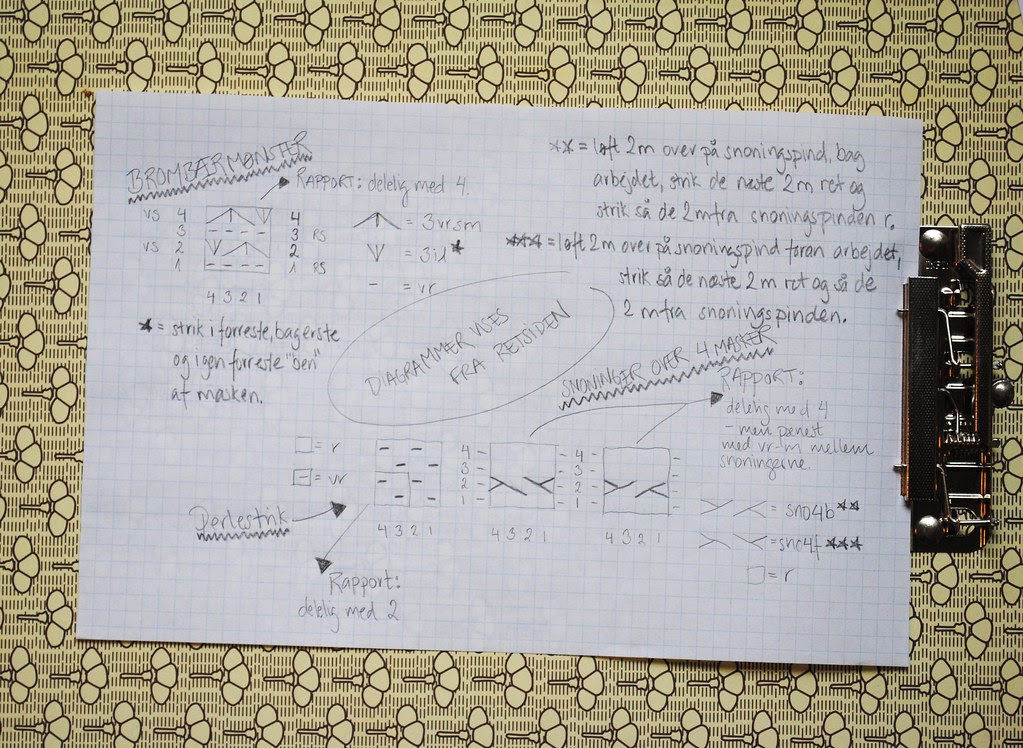 BROMBÆRMØNSTER
RAPPORT: delelig med 4.
VS 4 4
3 3 RS
VS 2 2
1 1 RS
4 3 2 1
= 3vrsm
= 3i1*
- = vr
* = strik i forreste, bagerste
og igen forreste "ben"
af masken.
** = løft 2m over på snoningspind, bag
arbejdet, strik de næste 2m ret og
strik så de 2m fra snoningspinden r.
*** = løft 2m over på snoningspind foran arbejdet,
strik så de næste 2m ret og så de
2 m fra snoningspinden.
DIAGRAMMER VISES
FRA RETSIDEN
SNONINGER OVER 4 MASKER
RAPPORT:
delelig med 4
- men pænest
med vr-m mellem
snoningerne.
= r
- = vr
Perlestrik
Rapport:
delelig med 2
4 3 2 1
4 - - 4 - -
3 - - 3 - -
2 - - 2 - -
1 - - 1 - -
4 3 2 1
4 3 2 1
= sno4b**
= sno4f***
= r